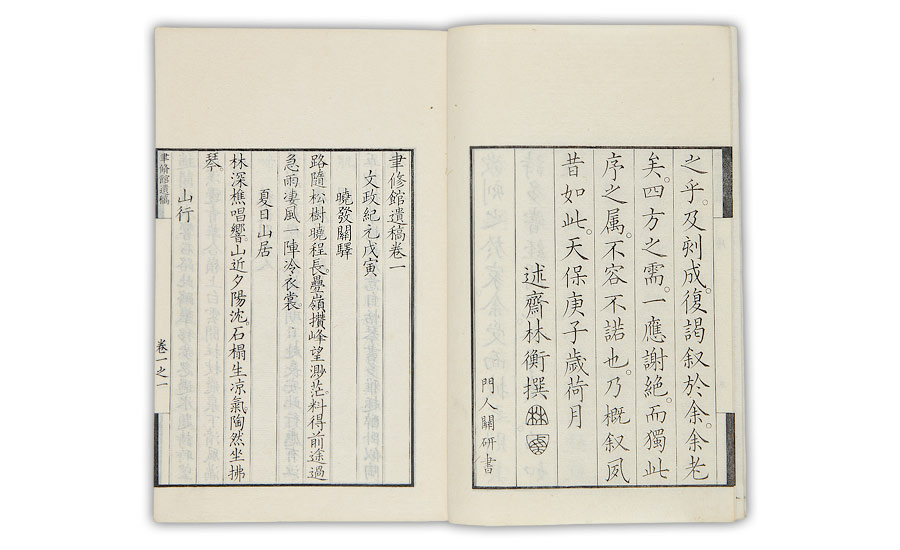 之乎。及刻成。復謁叙於余。余老
矣。四方之需。一應謝絶。而獨此
序之属。不容不諾也。乃概叙夙
昔如此。天保庚子歳荷月
述齋林衡撰
門人關研書
聿修館遺稿卷一
文政紀元戊寅
曉發關驛
路隨松樹曉程長。疊嶺攢峰望渺茫。料得前途過
急雨。凄風一陣冷衣裳。
夏日山居
林深樵唱響。山近夕陽沈。石榻生凉氣。陶然坐拂
琴。
山行
聿脩館遺稿
卷一之一